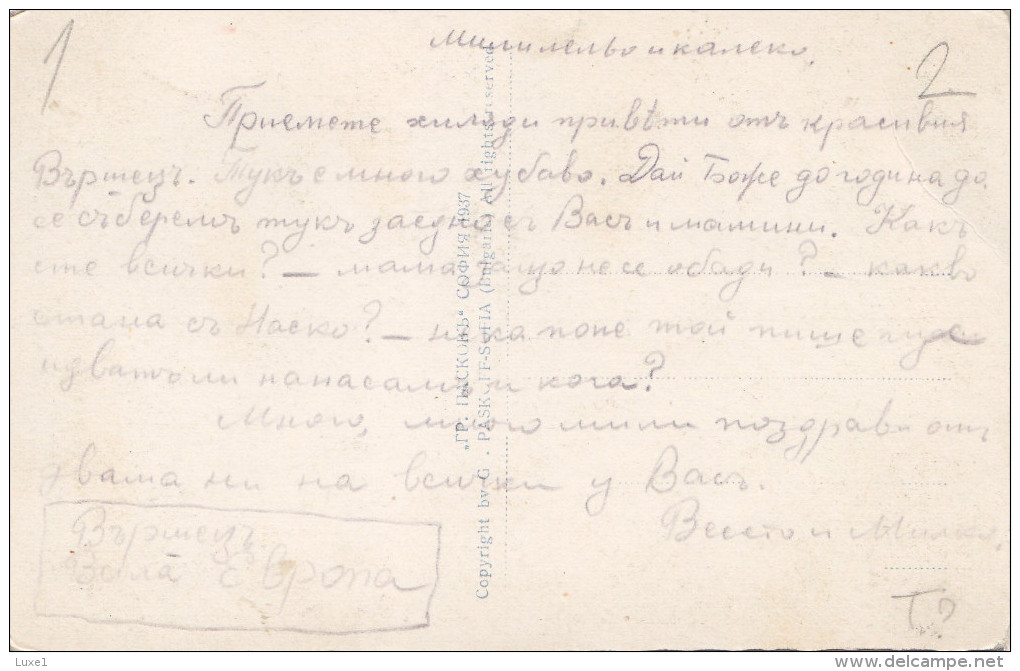 1
2
Мили лельо и калеко,
Приемете хиляди привѣти отъ красивия
Вършецъ. Тукъ е много хубаво. Дай Боже до година да
се съберемъ тукъ заедно съ Васъ и мамини. Какъ
сте всички? – мама защо не се обади? – какво
стана съ Наско? – нека поне той пише
идватъ ли и кога?
Много, много мили поздрави отъ
двама ни на всички у Васъ.
Вършецъ
Вила Европа
„ГР. ПАСКОВЪ“ СОФИЯ 1937
Copyright by G. PASKOFF-SOFIA (Bulgaria) All rights reserved
Luxe1
delcampe.net